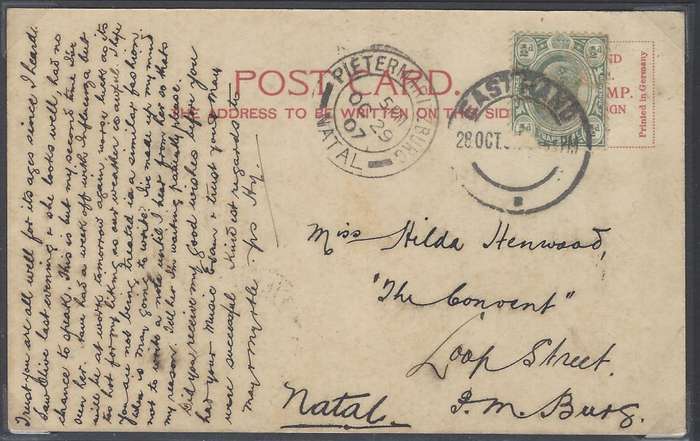 POST CARD.
THE ADDRESS TO BE WRITTEN ON THE SIDE
Printed in Germany
PIETERMARITZBURG
5 PM
OC 29
07
NATAL
EAST RAND
28 OCT PM
Trust you are all well for its ages since I heard.
Saw Olive last evening & she looks well, had no
chance to speak. This is but my second time Ive
been here. have had a week off with Influenza but
will be at work tomorrow again, worse luck as its
too hot for my liking as our weather is awful I hope
You are not being treated in a similar fashion.
is may going to write. Ive made up my mind
not to write a note until I hear from her so thats
my reason. Tell her Im waiting patiently please.
Did you receive my good wishes before you
had your Music Exam & trust you may
were successful Kindest regards to
may & myrtle yrs
Miss Hilda Henwood,
"The Convent"
Loop Street.
P. M. Burg.
Natal.